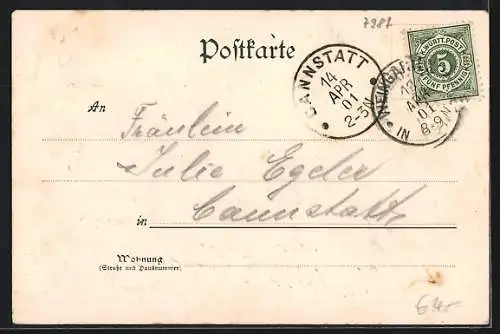 7981
Postkarte
CANNSTATT
14
APR
01
2-3N
K.WÜRTT.POST
5
FÜNF PFENNIG
WEINGARTEN
APR
01
8-9N
An
Fräulein
Julie Egeler
in Cannstatt
Wohnung
(Straße und Hausnummer)